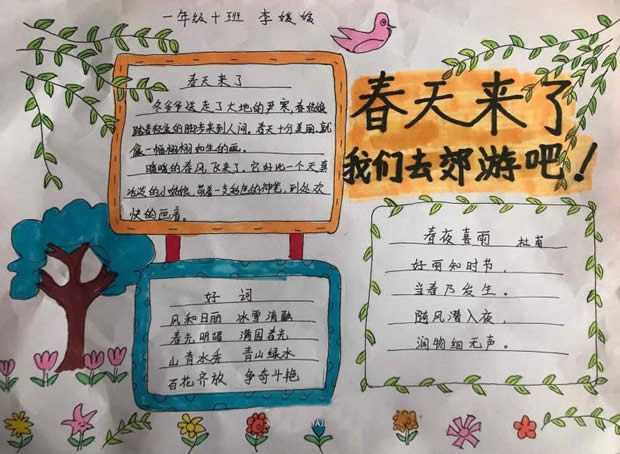 一年级十班 李媛媛
春天来了
我们去郊游吧！
春天来了
冬爷爷送走了大地的严寒，春姑娘
踏着轻盈的脚步来到人间，春天十分美丽，就
像一幅栩栩如生的画。
暖暖的春风飞来了，它好比一个天真
活泼的小姑娘，带着一支彩色的神笔，到处欢
快的画着。
好 词
风和日丽 冰雪消融
春光明媚 满园春光
山青水秀 青山绿水
百花齐放 争奇斗艳
春夜喜雨 杜甫
好雨知时节，
当春乃发生。
随风潜入夜，
润物细无声。